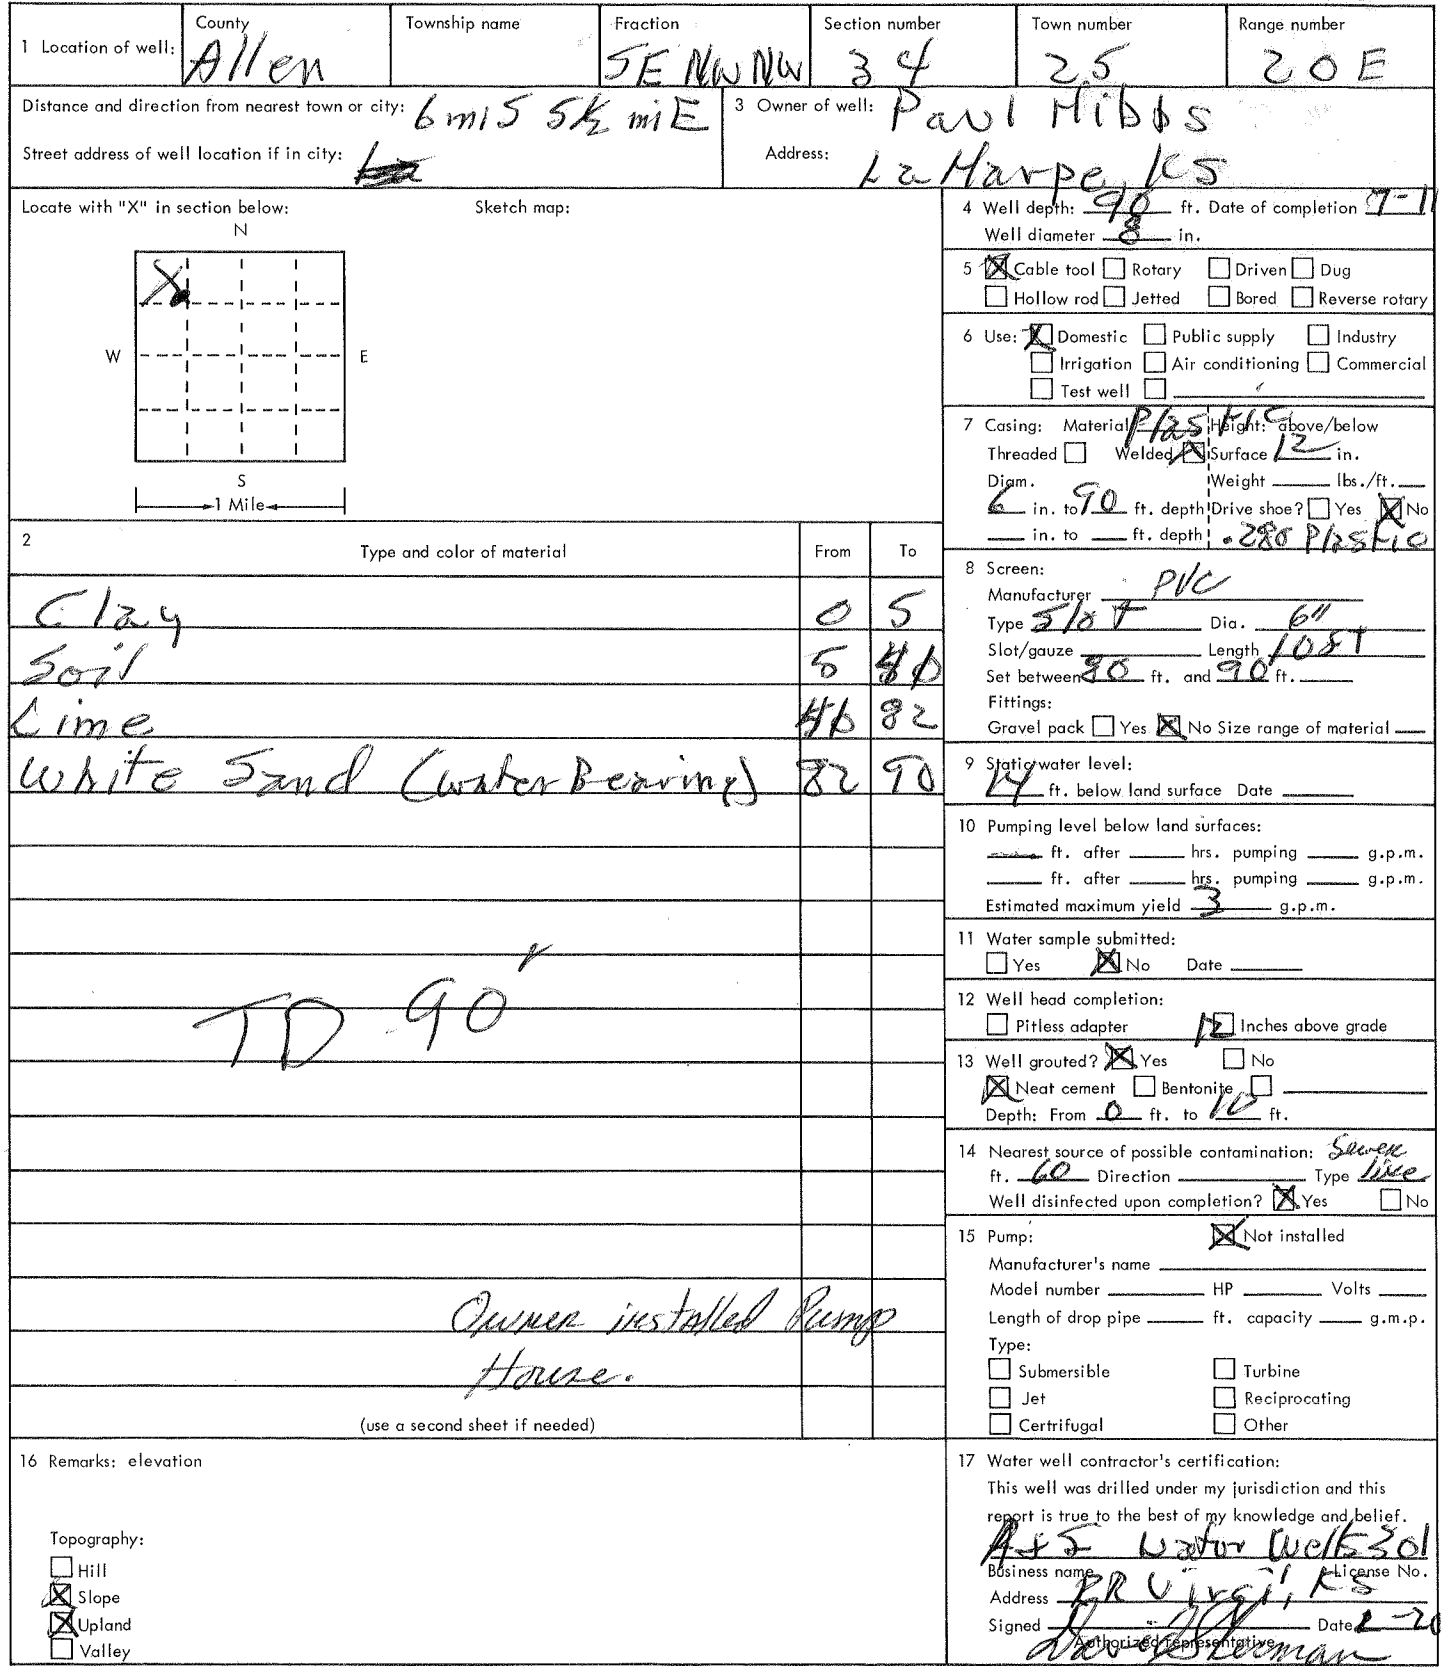 1 Location of well: County Allen Township name Fraction SE NW NW Section number 34 Town number 25 Range number 20 E
Distance and direction from nearest town or city: 6 mi S 5½ mi E
Street address of well location if in city:
3 Owner of well: Paul Hibbs
Address: La Harpe, KS
Locate with "X" in section below: Sketch map:
N
X
W E
S
1 Mile
2 Type and color of material From To
Clay 0 5
Soil 5 40
Lime 40 82
White Sand (Water Bearing) 82 90
TD 90'
Owner installed Pump
House.
(use a second sheet if needed)
4 Well depth: 90 ft. Date of completion 7-11
Well diameter 8 in.
5 X Cable tool Rotary Driven Dug
Hollow rod Jetted Bored Reverse rotary
6 Use: X Domestic Public supply Industry
Irrigation Air conditioning Commercial
Test well
7 Casing: Material Plastic Height: above/below
Threaded Welded X Surface 12 in.
Diam. Weight lbs./ft.
6 in. to 90 ft. depth Drive shoe? Yes X No
in. to ft. depth .280 Plastic
8 Screen:
Manufacturer PVC
Type Slot Dia. 6"
Slot/gauze Length 10 ft
Set between 80 ft. and 90 ft.
Fittings:
Gravel pack Yes X No Size range of material
9 Static water level:
14 ft. below land surface Date
10 Pumping level below land surfaces:
ft. after hrs. pumping g.p.m.
ft. after hrs. pumping g.p.m.
Estimated maximum yield 3 g.p.m.
11 Water sample submitted:
Yes X No Date
12 Well head completion:
Pitless adapter 12 Inches above grade
13 Well grouted? X Yes No
X Neat cement Bentonite
Depth: From 0 ft. to 10 ft.
14 Nearest source of possible contamination: Sewer
ft. 60 Direction Type line
Well disinfected upon completion? X Yes No
15 Pump: X Not installed
Manufacturer's name
Model number HP Volts
Length of drop pipe ft. capacity g.m.p.
Type:
Submersible Turbine
Jet Reciprocating
Certrifugal Other
16 Remarks: elevation
Topography:
Hill
X Slope
X Upland
Valley
17 Water well contractor's certification:
This well was drilled under my jurisdiction and this
report is true to the best of my knowledge and belief.
Water Well 301
Business name License No.
Address RR Virgil, KS
Signed Date
Authorized representative